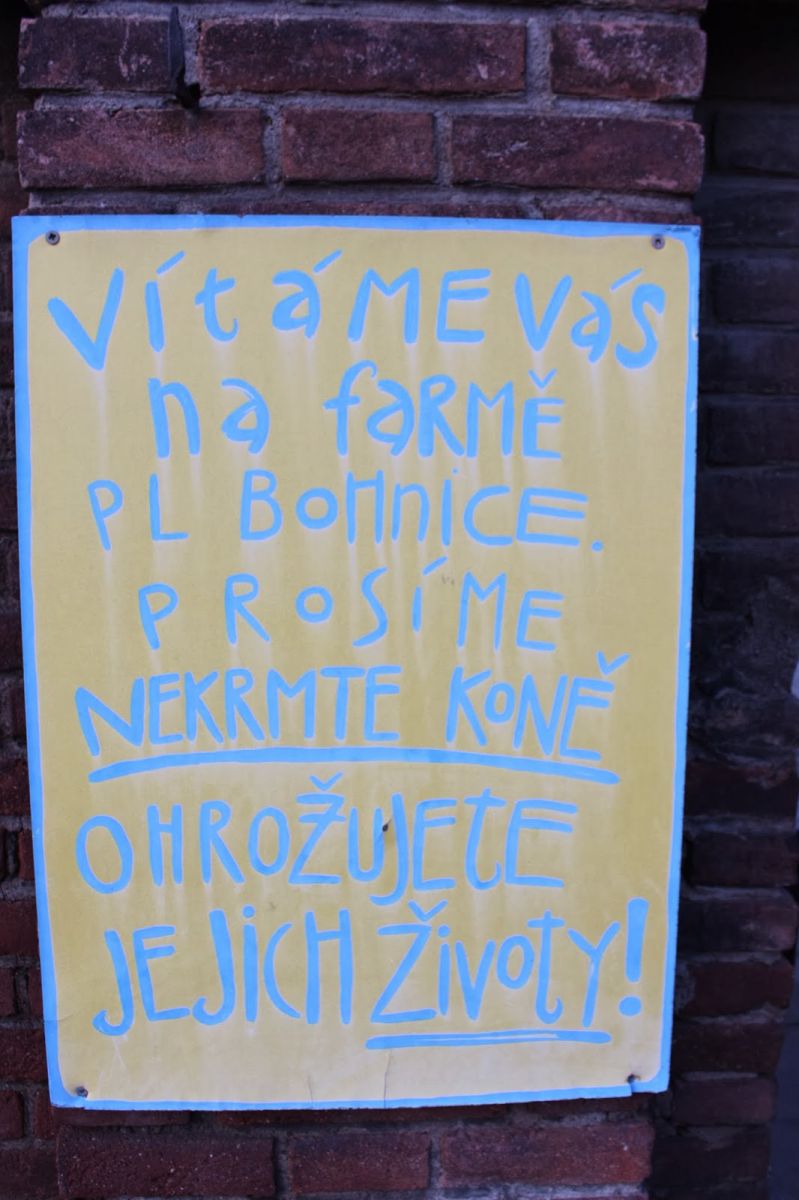 Vítáme Vás
na farmě
PL Bohnice.
Prosíme
NEKRMTE KONĚ
OHROŽUJETE
JEJICH Životy!